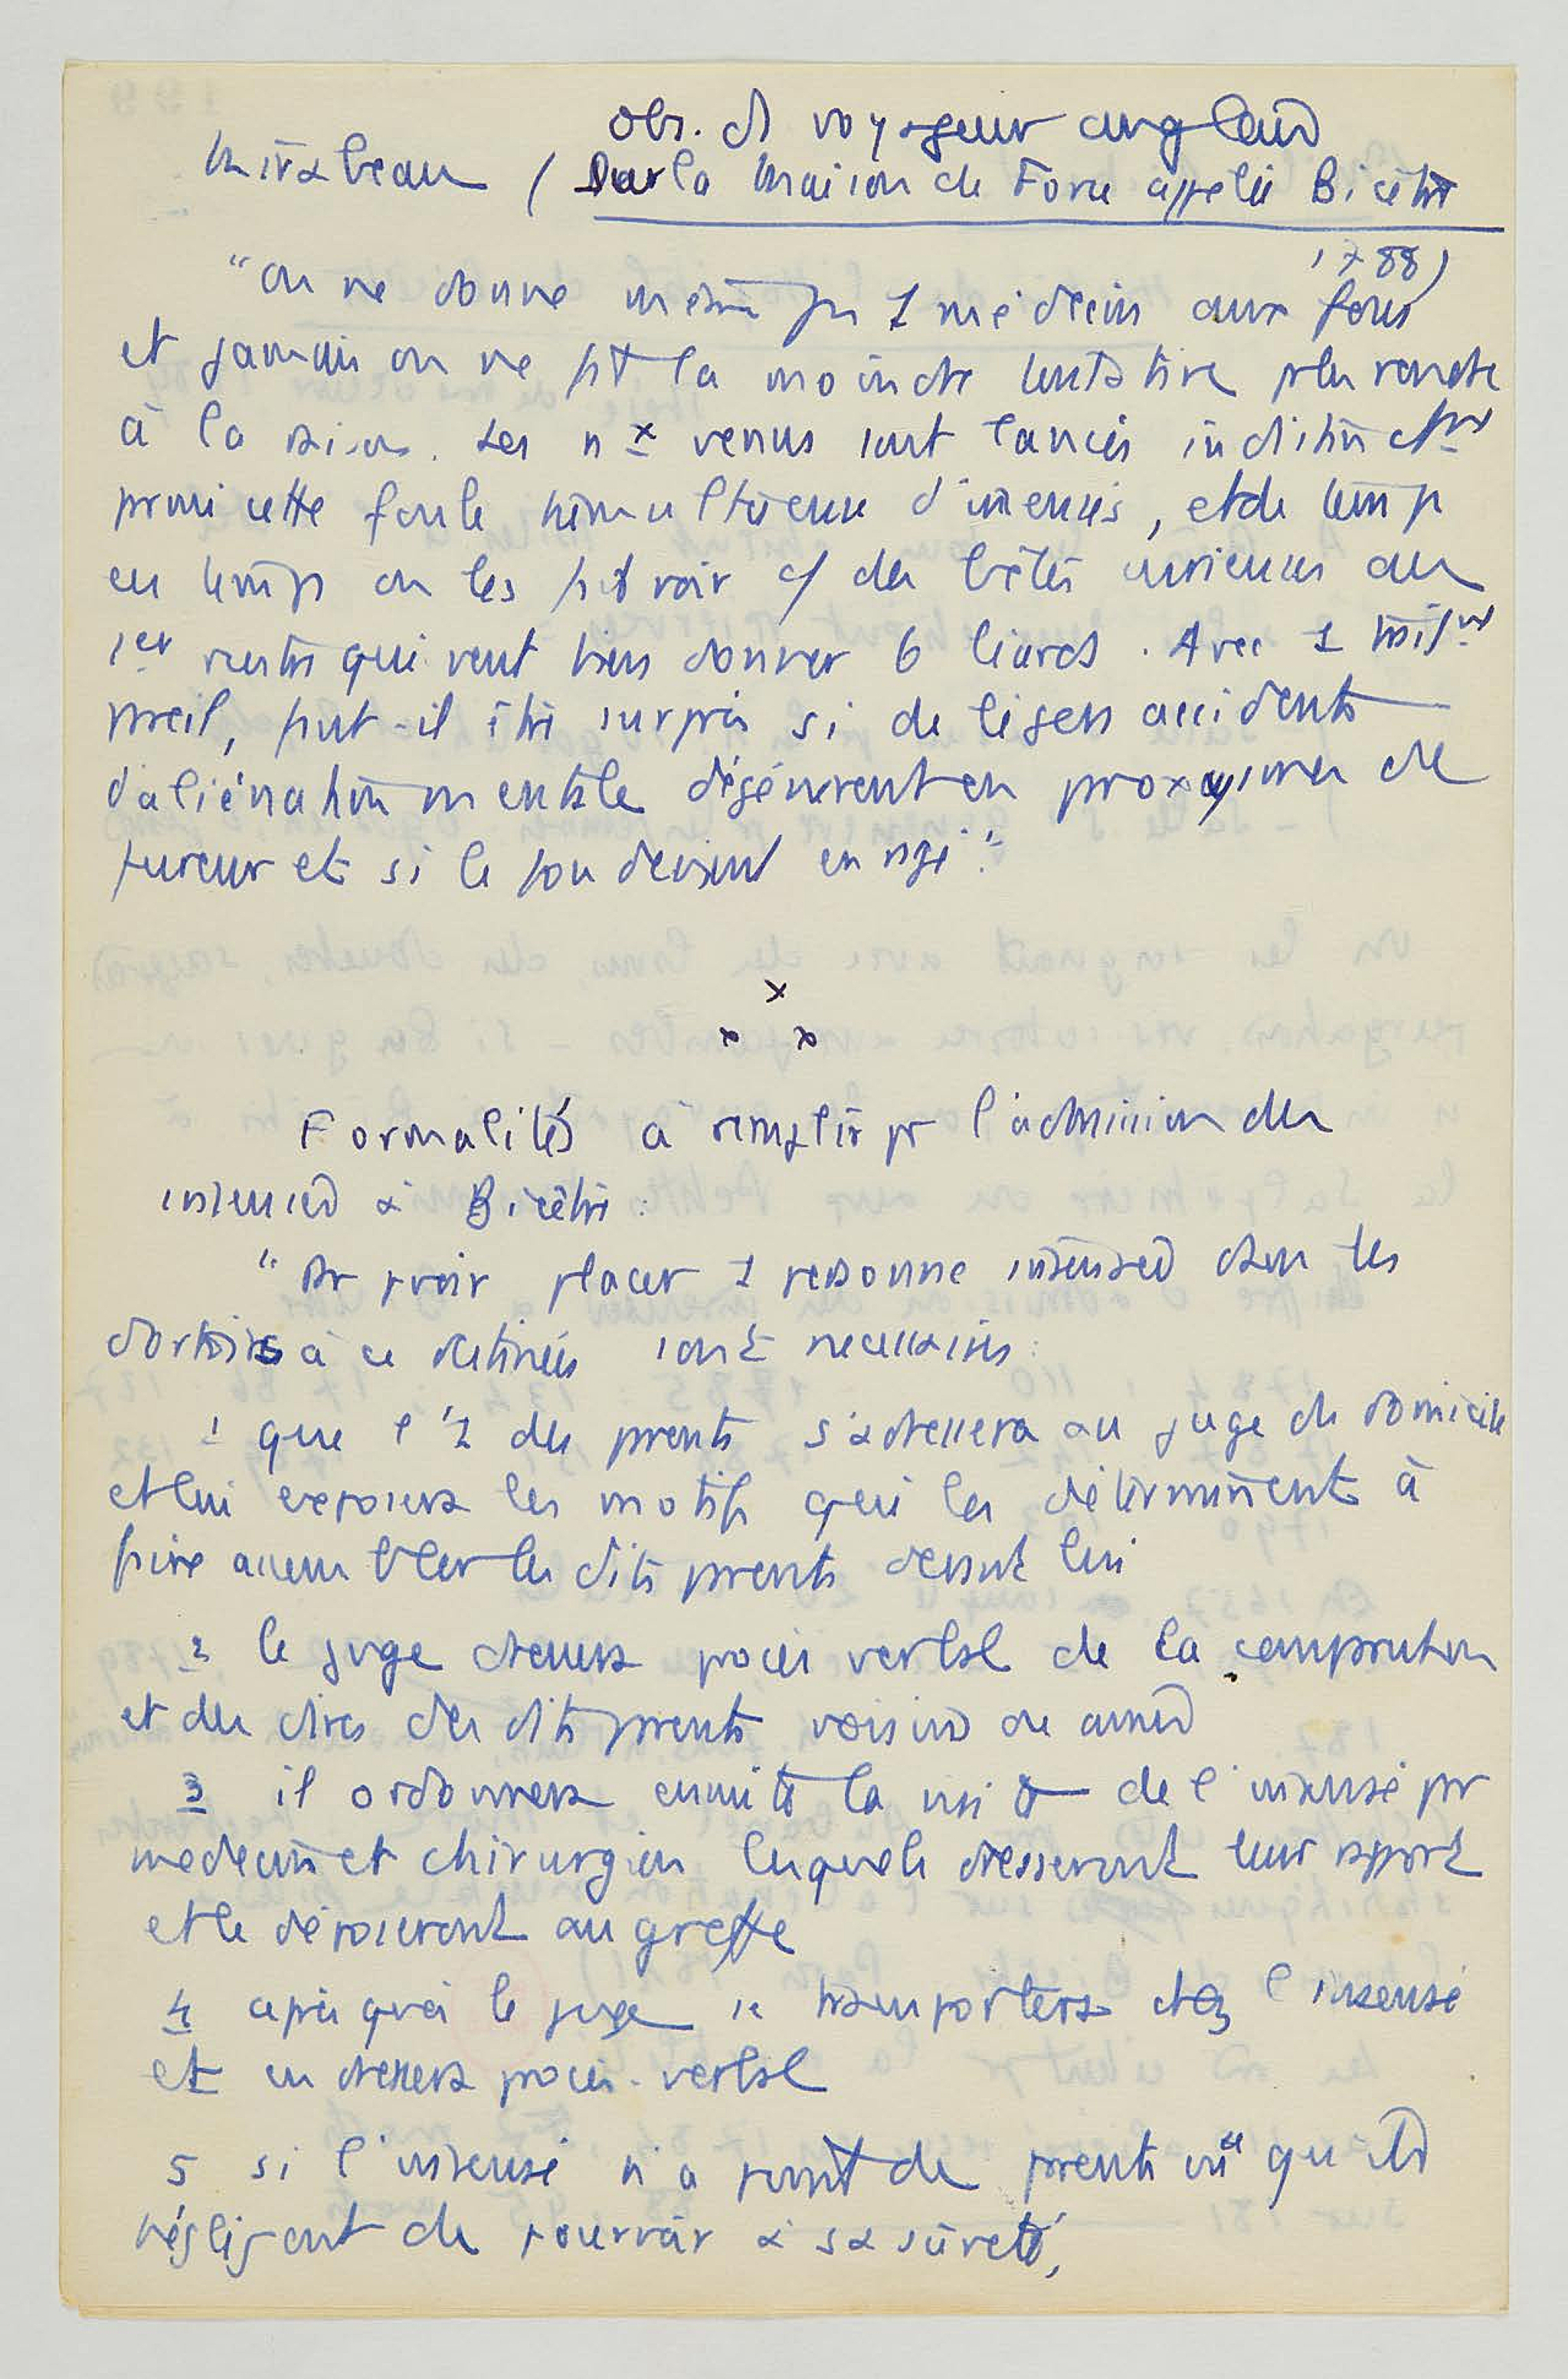 Obs. d'1 voyageur anglais
Mirabeau ( Sur la Maison de Force appelée Bicêtre
1788)
"On ne donne même pas 1 médecin aux fous
et jamais on ne fit la moindre tentative pr les rendre
à la raison. Les nx venus sont lancés indistinctmt
parmi cette foule tumultueuse d'insensés, et de temps
en temps on les fait voir c/ des bêtes curieuses au
1er rustre qui veut bien donner 6 liards. Avec 1 traitmt
pareil, faut-il être surpris si de légers accidents
d'aliénation mentale dégénèrent en paroxysmes de
fureur et si le fou devient enragé."
x
x x
Formalités à remplir pr l'admission des
insensés à Bicêtre :
"Pr pvoir placer 1 personne insensée dans les
dortoirs à ce destinés sont nécessaires :
1 que l'1 des parents s'adressera au juge du domicile
et lui exposera les motifs qui les déterminent à
faire assembler les dits parents devant lui
2 le juge dressera procès verbal de la comparution
et des dires des dits parents voisins ou amis
3 il ordonnera ensuite la visite de l'insensé par
medecin et chirurgien lesquels dresseront leur rapport
et le déposeront au greffe
4 après quoi le juge se transportera chez l'insensé
et en dressera procès-verbal
5 si l'insensé n'a point de parents ou qu'ils
négligent de pourvoir à sa sûreté,